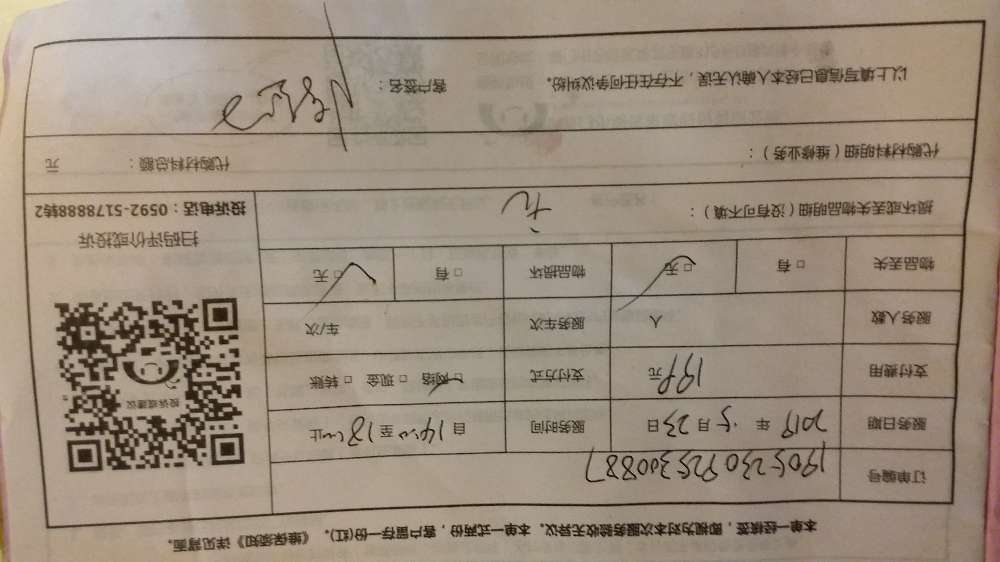 本单一经核签，即视为对本次服务验收无异议。本单一式两份，客户留存一份(红)。《维保须知》详见背面。
订单编号 1905230925300887
服务日期 2019 年 5 月 23 日 服务时间 自 14:00 至 18:00 止
支付费用 198 元 支付方式 □ 网络 □ 现金 □ 转账
服务人数 人 服务车次 车/次
物品丢失 □ 有 □ 无 物品损坏 □ 有 □ 无
投诉或建议
扫码评价或投诉
投诉电话：0592-5178888转2
损坏或丢失物品明细（没有可不填）： 无
代购材料明细（维修业务）： 代购材料总额： 元
以上填写信息已经本人确认无误，不存在任何争议纠纷。 客户签名：